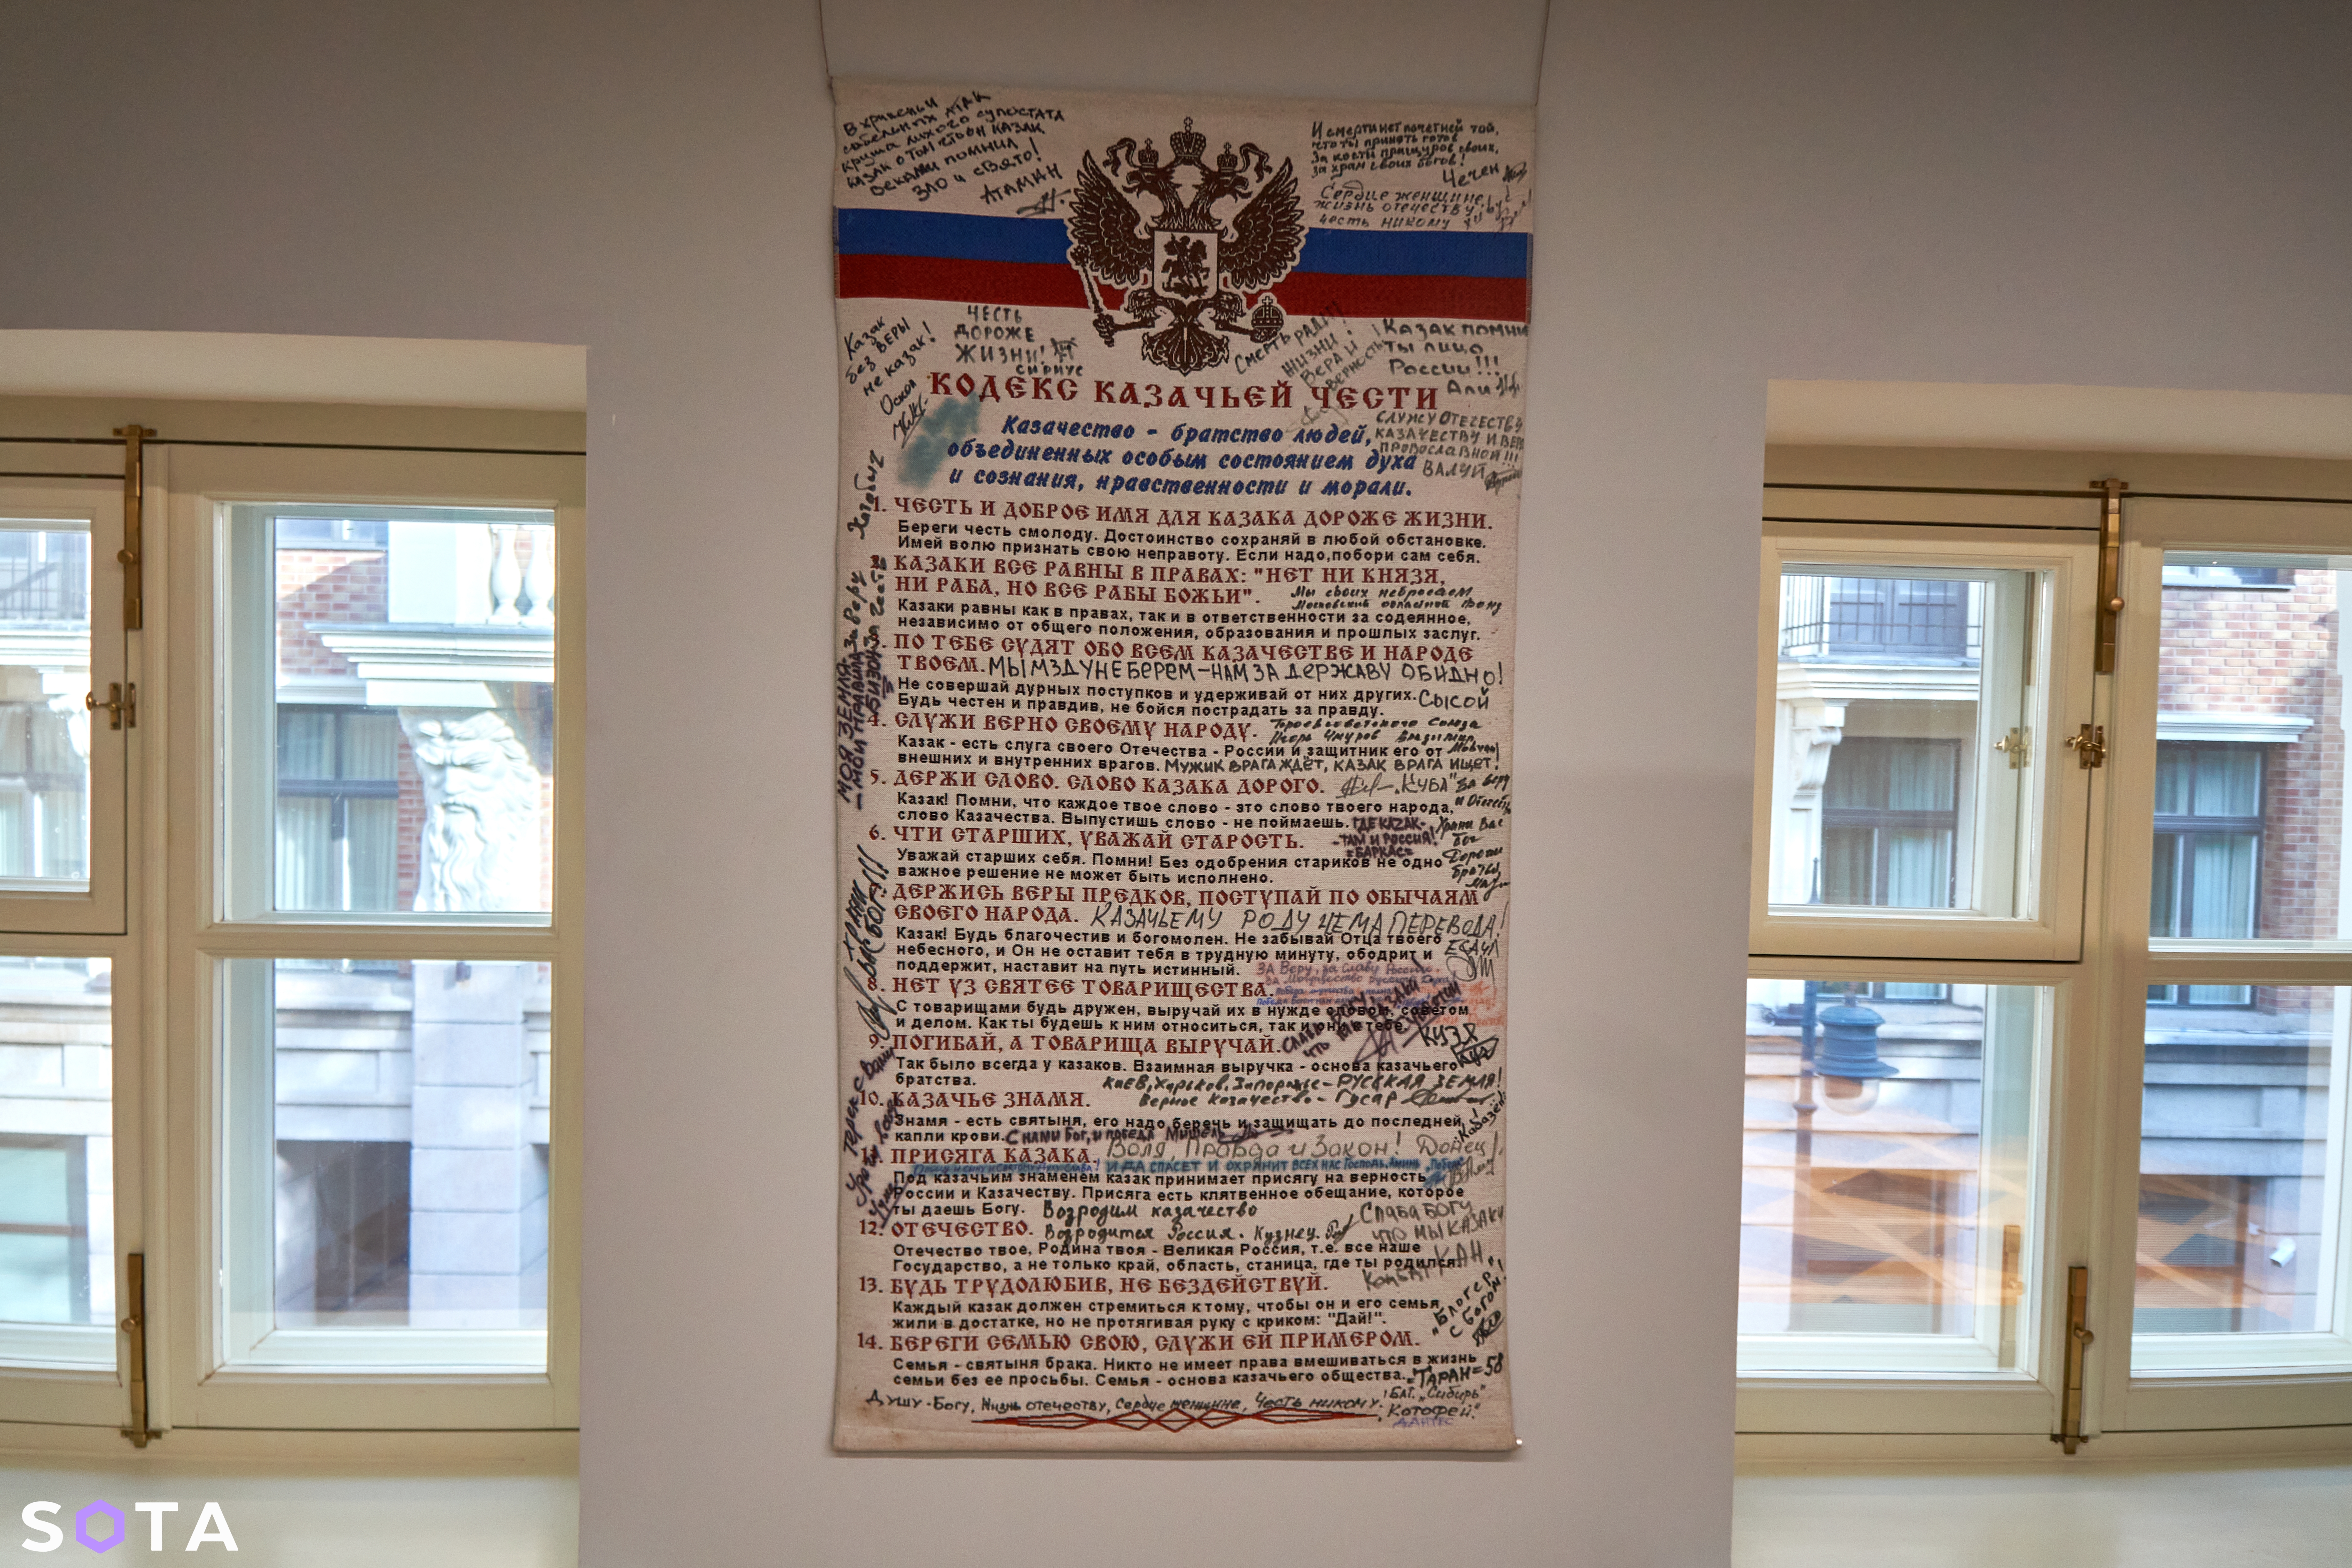 В хрипеньи
сабельных атак
круша лихого супостата
казак о том что он казак
веками помнил
зло и свято!
АТАМАН
И смерти нет почетней той,
что ты принять готов
За кости пращуров своих,
за храм своих богов!
Чечен
Сердце женщине,
жизнь отечеству,
честь никому
Казак
без ВЕРЫ
не казак!
Оскол
ЧЕСТЬ
ДОРОЖЕ
ЖИЗНИ!
СИРИУС
СМЕРТЬ РАДИ
ЖИЗНИ!
ВЕРА И
ВЕРНОСТЬ!
Казак помни
ты лицо
России!!!
Али
КОДЕКС КАЗАЧЬЕЙ ЧЕСТИ
СЛУЖУ ОТЕЧЕСТВУ
КАЗАЧЕСТВУ И ВЕРЕ
ПРОВОСЛАВНОЙ!!!
ВАЛУЙ
Казачество - братство людей,
объединенных особым состоянием духа
и сознания, нравственности и морали.
Хоттабыч
1. ЧЕСТЬ И ДОБРОЕ ИМЯ ДЛЯ КАЗАКА ДОРОЖЕ ЖИЗНИ.
Береги честь смолоду. Достоинство сохраняй в любой обстановке.
Имей волю признать свою неправоту. Если надо, побори сам себя.
2. КАЗАКИ ВСЕ РАВНЫ В ПРАВАХ: "НЕТ НИ КНЯЗЯ,
НИ РАБА, НО ВСЕ РАБЫ БОЖЬИ".
Мы своих не бросаем
Московский областной фонд
Казаки равны как в правах, так и в ответственности за содеянное,
независимо от общего положения, образования и прошлых заслуг.
МОЯ ЗЕМЛЯ
– МОИ ПРАВИЛА
За Веру
За Честь
БИЗОН
3. ПО ТЕБЕ СУДЯТ ОБО ВСЕМ КАЗАЧЕСТВЕ И НАРОДЕ
ТВОЕМ. МЫ МЗДУ НЕ БЕРЕМ – НАМ ЗА ДЕРЖАВУ ОБИДНО!
Не совершай дурных поступков и удерживай от них других. СЫСОЙ
Будь честен и правдив, не бойся пострадать за правду.
4. СЛУЖИ ВЕРНО СВОЕМУ НАРОДУ.
Казак - есть слуга своего Отечества - России и защитник его от
внешних и внутренних врагов. МУЖИК ВРАГА ЖДЁТ, КАЗАК ВРАГА ИЩЕТ!
5. ДЕРЖИ СЛОВО. СЛОВО КАЗАКА ДОРОГО. "КУБА" За веру
и Отечество
Казак! Помни, что каждое твое слово - это слово твоего народа,
слово Казачества. Выпустишь слово - не поймаешь. ГДЕ КАЗАК-
-ТАМ И РОССИЯ!
=БАРКАС=
Храни Вас
Бог
Дорогие
братья
6. ЧТИ СТАРШИХ, УВАЖАЙ СТАРОСТЬ.
Уважай старших себя. Помни! Без одобрения стариков не одно
важное решение не может быть исполнено.
ХРАНИ
ВАС БОГ!!!
ДЕРЖИСЬ ВЕРЫ ПРЕДКОВ, ПОСТУПАЙ ПО ОБЫЧАЯМ
СВОЕГО НАРОДА. КАЗАЧЬЕМУ РОДУ НЕМА ПЕРЕВОДА!
ЕСАУЛ
Казак! Будь благочестив и богомолен. Не забывай Отца твоего
небесного, и Он не оставит тебя в трудную минуту, ободрит и
поддержит, наставит на путь истинный. За Веру, за Славу России,
8. НЕТ УЗ СВЯТЕЕ ТОВАРИЩЕСТВА.
С товарищами будь дружен, выручай их в нужде словом, советом
и делом. Как ты будешь к ним относиться, так и они к тебе.
СЛАВА БОГУ
ЧТО МЫ КАЗАКИ
КУЗЯ
9. ПОГИБАЙ, А ТОВАРИЩА ВЫРУЧАЙ.
Так было всегда у казаков. Взаимная выручка - основа казачьего
братства. Киев, Харьков, Запорожье – РУССКАЯ ЗЕМЛЯ!
Верное Казачество – Гусар
10. КАЗАЧЬЕ ЗНАМЯ.
Знамя - есть святыня, его надо беречь и защищать до последней
капли крови. С НАМИ БОГ, И ПОБЕДА Мишель
11. ПРИСЯГА КАЗАКА. Воля, Правда и Закон! Донец!
И ДА СПАСЕТ И ОХРАНИТ ВСЕХ НАС Господь. Аминь
Под казачьим знаменем казак принимает присягу на верность
России и Казачеству. Присяга есть клятвенное обещание, которое
ты даешь Богу. Возродим казачество
12. ОТЕЧЕСТВО. Возродится Россия. Кузнец.
СЛАВА БОГУ
ЧТО МЫ КАЗАКИ
КАН
Отечество твое, Родина твоя - Великая Россия, т.е. все наше
Государство, а не только край, область, станица, где ты родился.
13. БУДЬ ТРУДОЛЮБИВ, НЕ БЕЗДЕЙСТВУЙ.
Каждый казак должен стремиться к тому, чтобы он и его семья
жили в достатке, но не протягивая руку с криком: "Дай!".
"Блогер"
с богом!
14. БЕРЕГИ СЕМЬЮ СВОЮ, СЛУЖИ ЕЙ ПРИМЕРОМ.
Семья - святыня брака. Никто не имеет права вмешиваться в жизнь
семьи без ее просьбы. Семья - основа казачьего общества. "ТАРАН"=58
Душу - Богу, Жизнь отечеству, Сердце женщине, Честь никому!
БАТ. "Сибирь"
"Котофей"
ДАНТЕС
SOTA